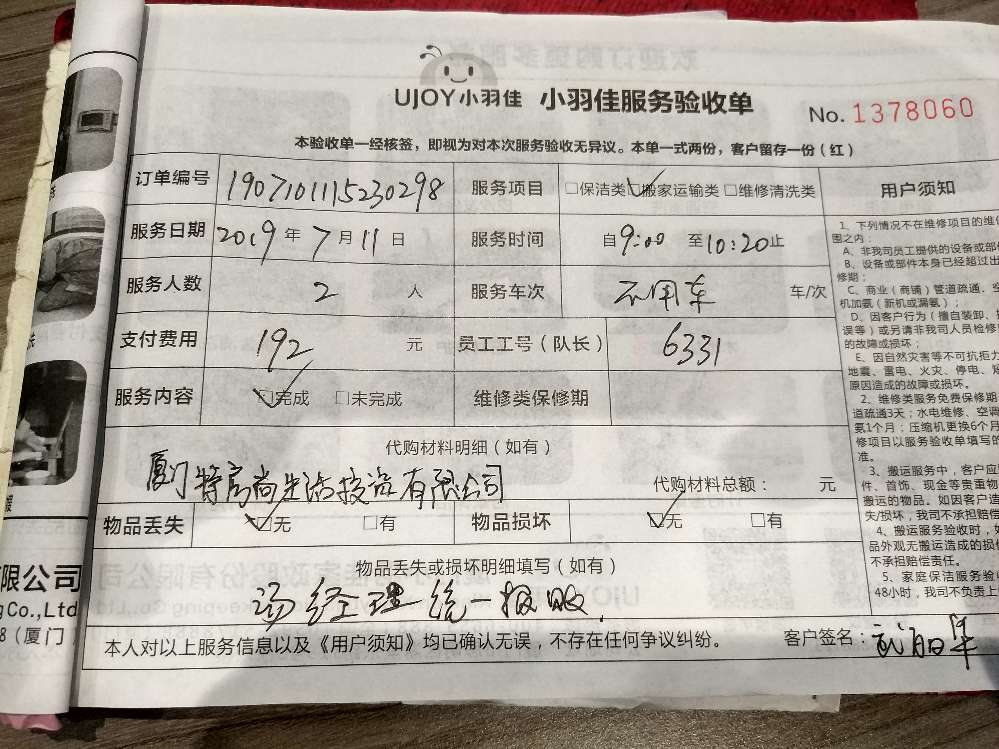 UJOY小羽佳 小羽佳服务验收单 No. 1378060
本验收单一经核签，即视为对本次服务验收无异议。本单一式两份，客户留存一份（红）
订单编号 1907101115230298 服务项目 □保洁类 ☑搬家运输类 □维修清洗类
服务日期 2019 年 7 月 11 日 服务时间 自9:00 至10:20止
服务人数 2 人 服务车次 不用车 车/次
支付费用 192 元 员工工号（队长） 6331
服务内容 ☑完成 □未完成 维修类保修期
代购材料明细（如有）
厦门特房尚生活投资有限公司 代购材料总额： 元
物品丢失 ☑无 □有 物品损坏 ☑无 □有
物品丢失或损坏明细填写（如有）
汤经理统一报账
本人对以上服务信息以及《用户须知》均已确认无误，不存在任何争议纠纷。 客户签名：
用户须知
1、下列情况不在维修项目的维
围之内：
A、非我司员工提供的设备或部
B、设备或部件本身已经超过出
修期；
C、商业（商铺）管道疏通、空
机加氨（新机或漏氨）；
D、因客户行为（擅自装卸、
误等）或另请非我司人员检修
的故障或损坏；
E、因自然灾害等不可抗拒力
地震、雷电、火灾、停电、
原因造成的故障或损坏。
2、维修类服务免费保修期
道疏通3天；水电维修、空调
氨1个月；压缩机更换6个月
修项目以服务验收单填写的
准。
3、搬运服务中，客户应
件、首饰、现金等贵重物
搬运的物品。如因客户造
失/损坏，我司不承担赔偿
4、搬运服务验收时，如
品外观无搬运造成的损
不承担赔偿责任。
5、家庭保洁服务验
48小时，我司不负责上
限公司
g Co.,Ltd
8（厦门